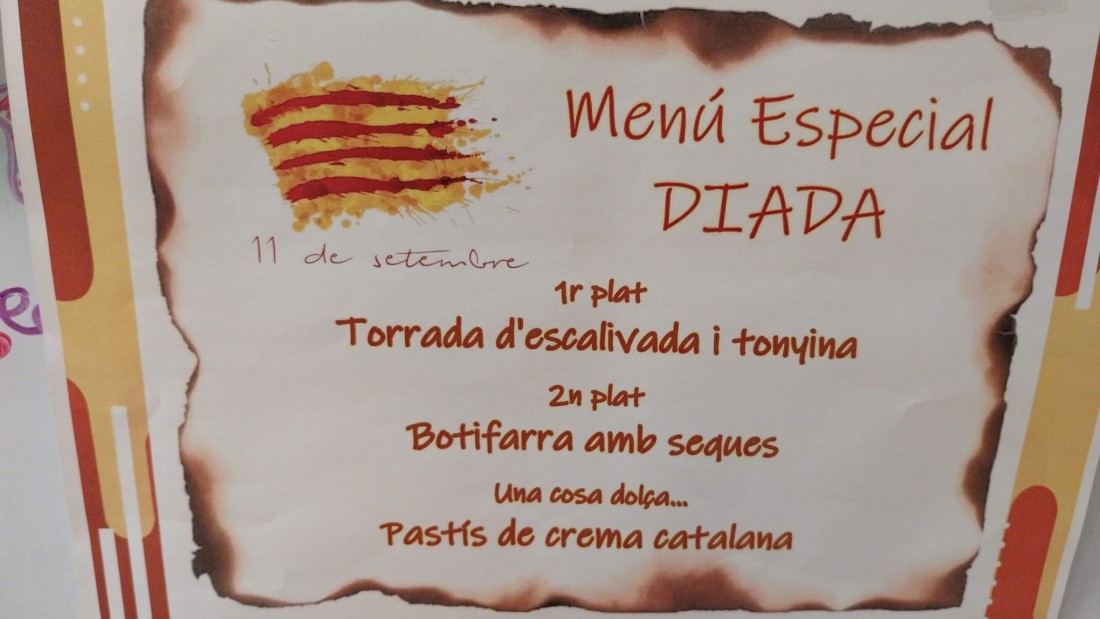 Menú Especial
DIADA
11 de setembre
1r plat
Torrada d'escalivada i tonyina
2n plat
Botifarra amb seques
Una cosa dolça...
Pastís de crema catalana